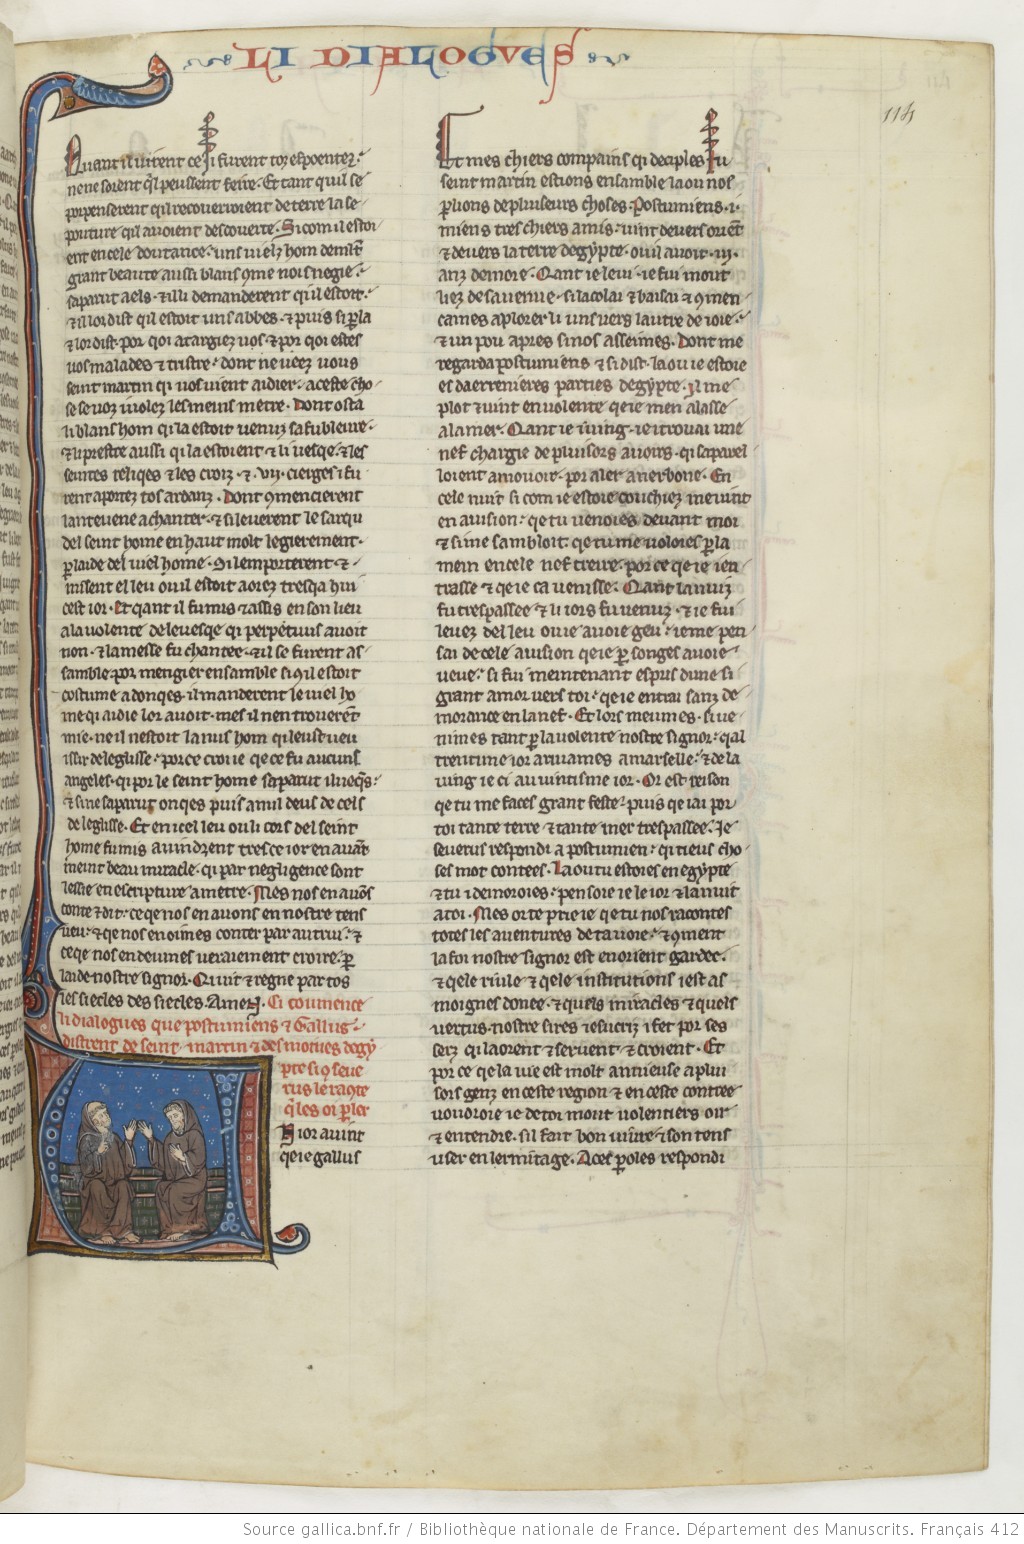 LI DIALOGUES
114
Quant il virent ce si furent toz espoentez.
ne ne sorent q̃l peussent feire. Et tant quil se
porpenserent qͥl recouverroient de terre la se
pouture qil avoient descouverte. Si com il estoi
ent en cele doutance. uns vielz hom de mlt̃
grant beaute aussi blans ꝯme nois negie
saparut a els. ⁊ illi demanderent qi il estoit.
⁊ il lor dist qil estoit uns abbes. ⁊ puis si ꝑla
⁊ lor dist. por qoi atargiez vos ⁊ por qoi estes
vos malades ⁊ tristre. dont ne veez vous
seint martin qi vos vient aidier. a ceste cho
se se voz volez les meins metre. Dont osta
li blans hom qi la estoit venuz sa fubleure.
⁊ li prestre aussi qi la estoient ⁊ li vesqe. ⁊ les
seintes reliqes ⁊ les croiz. ⁊ .vii. cierges i fu
rent aportez tos ardanz. Dont ꝯmencierent
lantevene a chanter. ⁊ si leverent le sarqu
del seint home en haut molt legierement.
ꝑ laide del viel home. Si lemporterent ⁊
missent el leu ou il estoit aorez tresqa hui
cest ior. Et qant il fu mis ⁊ assis en son lieu
a la volente de levesqe qi perpetuus avoit
non. ⁊ la messe fu chantee. ⁊ il se furent as
samble por mengier ensamble si ꝯ il estoit
costume adonqes. il manderent le viel ho
me qi aidie lor avoit. mes il nen troverẽt
mie. ne il nestoit la nus hom qi leust veu
issir de leglisse. por ce croi ie qe ce fu aucuns
angeles. qi por le seint home saparut ilueqs.
⁊ si ne saparut onqes puis a nul deus de cels
de leglisse. Et en icel leu ou li cors del seint
home fu mis avindrent tresce ior en avãt
meint beau miracle. qi par negligence sont
lessie en escripture a metre. Mes nos en avõs
conte ⁊ dit. ce qe nos en avons en nostre tens
veu. ⁊ qe nos en oimes conter par autrui. ⁊
ce qe nos en devines veraiement croire. ꝑ
laide nostre signor. Qi vit ⁊ regne par tos
les siecles des siecles. Amen. Ci coumence
li dialogues que postumiens ⁊ Gallus
distrent de seint martin ⁊ des moines degy
pte si ꝯ seve
rus le raꝯte
q̃ les oi ꝑler
N ior avint
qe ie gallus
Et mes chiers compains qi deciples fu
seint martin estions ensamble la ou nos
ꝑlions de plusieurs choses. Postumiens .i.
miens tres chiers amis. vint devers oriẽt
⁊ devers la terre degypte. ou il avoit .iii.
anz demore. Qant ie le vi. ie fui mout
liez de sa venue. si lacolai ⁊ baisai ⁊ ꝯmen
cames a plorer li uns vers lautre de ioie.
⁊ un pou apres si nos asseimes. Dont me
regarda postumiens ⁊ si dist. la ou ie estoie
es daerrenieres parties degypte. il me
plot ⁊ vint en volente qe ie men alasse
a la mer. Qant ie i ving. ie i trovai une
nef chargie de pluisors avoirs. qi saparel
loient a movoir. por aler a nerbone. En
cele nuit si com ie estoie couchiez me vint
en avision. qe tu venoies devant moi
⁊ si me sambloit qe tu me voloies ꝑ la
mein en cele nef trere. por ce qe ie i en
trasse ⁊ qe ie ca venisse. Qant la nuiz
fu trespassee ⁊ li iors fu venuz. ⁊ ie fui
levez del leu ou ie avoie geu. ie me pen
sai de cele avision qe ie ꝑ songes avoie
veue. si fui meintenant espris dune si
grant amor vers toi. qe ie entrai sanz de
morance en la nef. Et lors meumes. si ve
nimes tant ꝑ la volente nostre signor. qal
trentime ior arivames a marselle. ⁊ de la
ving ie ci au vintisme ior. Or est reison
qe tu me faces grant feste. puis qe iai por
toi tante terre ⁊ tante mer trespassee. Ie
severus respondi a postumien. qi tieus cho
ses mot contees. La ou tu estoies en egypte
⁊ tu i demoroies. pensoie ie le ior ⁊ la nuit
a toi. Mes or te prie ie qe tu nos racontes
totes les aventures de ta voie. ⁊ ꝯment
la foi nostre signor est en orient gardee.
⁊ qele riule ⁊ qele institutions iest as
moignes donee. ⁊ quels miracles ⁊ quels
vertus nostre sires iesucriz i fet por ses
serz qi laorent ⁊ servent. ⁊ croient. Et
por ce qe la vie est molt anuieuse a plui
sors genz en ceste region ⁊ en ceste contree
vouroie ie de toi mout volentiers oir
⁊ entendre. sil fait bon vivre ⁊ son tens
user en lermitage. A ces ꝑoles respondi
Source gallica.bnf.fr / Bibliothèque nationale de France. Département des Manuscrits. Français 412